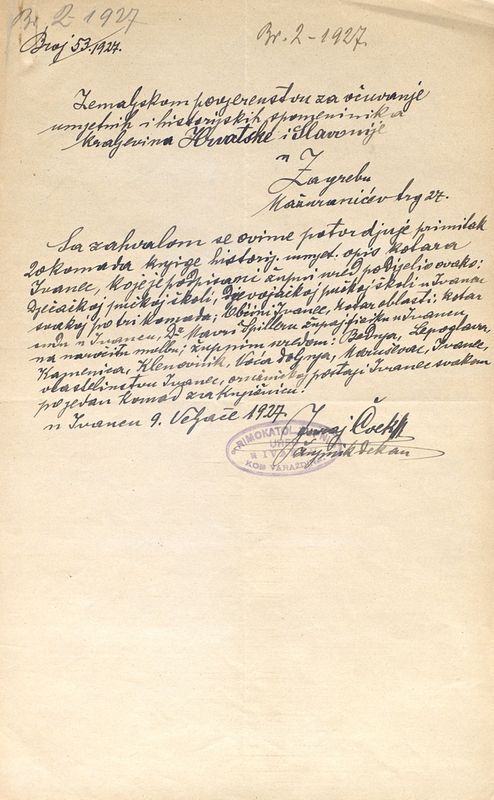 Br. 2-1927
Broj 53.1927.
Br. 2-1927.
Zemaljskom povjerenstvu za očuvanje
umjetnih i historijskih spomenika
kraljevina Hrvatske i Slavonije
u
Zagrebu
Mažuranićev trg 27.
Sa zahvalom se ovime potvrdjuje primitak
20 komada knjige history. umjet. opis kotara
Ivanec, koje je podpisani župni ured podijelio ovako:
Dječačkoj pučkoj školi, Djevojačkoj pučkoj školi u Ivancu
svakoj po tri komada; Općini Ivanec, kotar. oblasti, kotar.
sudu u Ivancu, Dr Mavri Špilleru župa. fiziku u Ivancu
na naročitu molbu; župnim uredom: Bednja, Lepoglava,
Kamenica, Klenovnik, Voća dolnja, Maruševac, Ivanec,
vlastelinstvu Ivanec, oružničkoj postaji Ivanec svakom
po jedan komad za knjižnicu.
u Ivancu 9. Veljače 1927.
Juraj Čuk
župnik dekan
RIMOKATOL. ŽUPNI
URED
U IVANCU
KOB VARAŽDIN